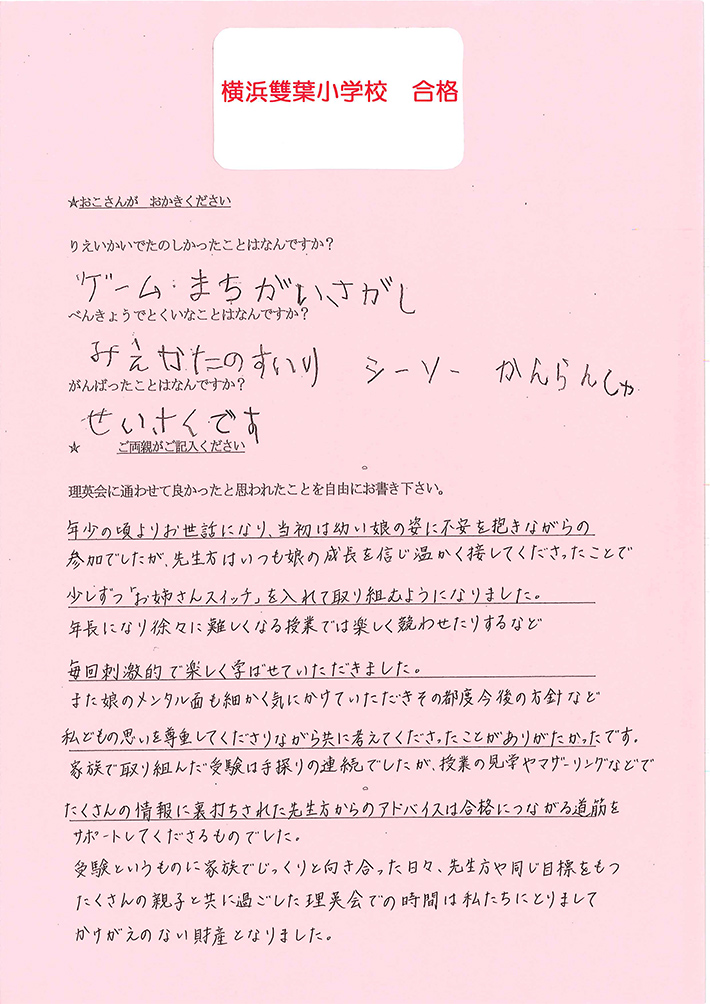 横浜雙葉小学校　合格
☆おこさんが　おかきください
りえいかいでたのしかったことはなんですか？
ゲーム・まちがいさがし
べんきょうでとくいなことはなんですか？
みえかたのすいり　シーソー　かんらんしゃ
がんばったことはなんですか？
せいさくです
☆　ご両親がご記入ください
理英会に通わせて良かったと思われたことを自由にお書き下さい。
年少の頃よりお世話になり、当初は幼い娘の姿に不安を抱きながらの
参加でしたが、先生方はいつも娘の成長を信じ温かく接してくださったことで
少しずつ「お姉さんスイッチ」を入れて取り組むようになりました。
年長になり徐々に難しくなる授業では楽しく競わせたりするなど
毎回刺激的で楽しく学ばせていただきました。
また娘のメンタル面も細かく気にかけていただきその都度今後の方針など
私どもの思いを尊重してくださりながら共に考えてくださったことがありがたかったです。
家族で取り組んだ受験は手探りの連続でしたが、授業の見学やマザーリングなどで
たくさんの情報に裏打ちされた先生方からのアドバイスは合格につながる道筋を
サポートしてくださるものでした。
受験というものに家族でじっくりと向き合った日々、先生方や同じ目標をもつ
たくさんの親子と共に過ごした理英会での時間は私たちにとりまして
かけがえのない財産となりました。